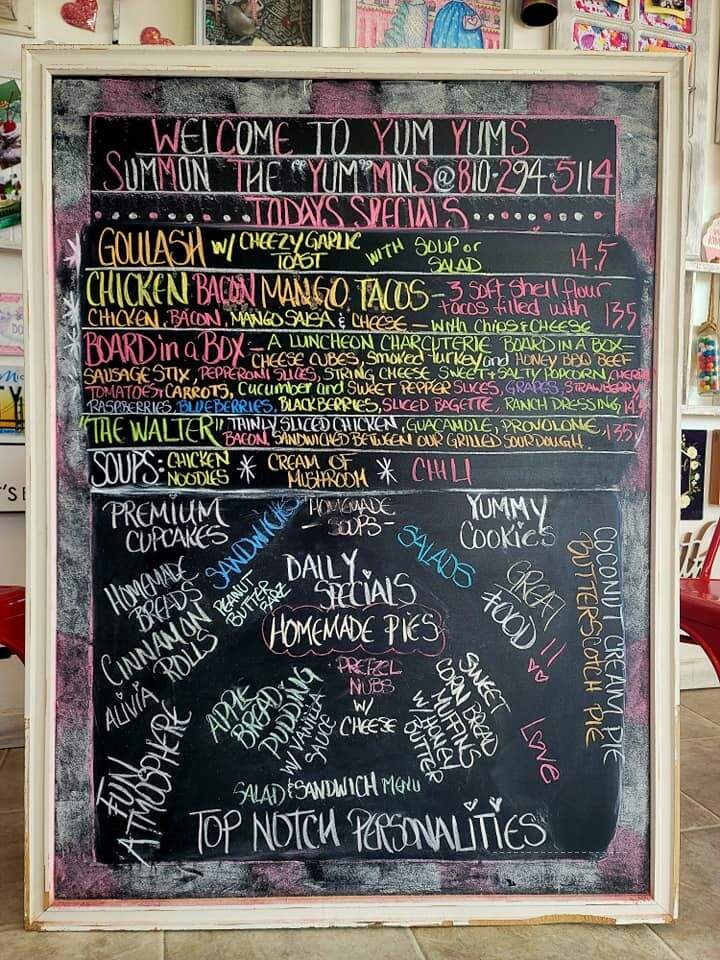 WELCOME TO YUM YUMS
SUMMON THE "YUM"MINS@810-294-5114
TODAYS SPECIALS
GOULASH W/ CHEEZY GARLIC TOAST WITH SOUP or SALAD 14.5
CHICKEN BACON MANGO TACOS - 3 soft shell flour
tacos filled with 13.5
CHICKEN, BACON, MANGO SALSA & CHEESE - WITH CHIPS & CHEESE
BOARD in a BOX - A LUNCHEON CHARCUTERIE BOARD IN A BOX -
CHEESE CUBES, Smoked turkey and HONEY BBQ BEEF
SAUSAGE STIX, PEPPERONI SLICES, STRING CHEESE, SWEET & SALTY POPCORN, CHERRY
TOMATOES & CARROTS, Cucumber and SWEET PEPPER SLICES, GRAPES, STRAWBERRY
RASPBERRIES, BLUEBERRIES, BLACKBERRIES, SLICED BAGETTE, RANCH DRESSING, 14.5
"THE WALTER" THINLY SLICED CHICKEN, GUACAMOLE, PROVOLONE,
BACON, SANDWICHED BETWEEN OUR GRILLED SOURDOUGH. 13.5
SOUPS: CHICKEN NOODLES * CREAM OF MUSHROOM * CHILI
PREMIUM
CUPCAKES
SANDWICHES
HOMEMADE
- SOUPS -
YUMMY
COOKIES
SALADS
HOMEMADE
BREADS
PEANUT
BUTTER
DAILY
SPECIALS
GREAT
FOOD!!
COCONUT CREAM PIE
BUTTERSCOTCH PIE
CINNAMON
ROLLS
HOMEMADE PIES
ALIVIA
PRETZEL
NUBS
W/
CHEESE
APPLE
BREAD
PUDDING
W/ VANILLA
SAUCE
SWEET
CORN BREAD
MUFFINS
W/ HONEY
BUTTER
FUN
ATMOSPHERE
LOVE
SALAD & SANDWICH MENU
TOP NOTCH PERSONALITIES